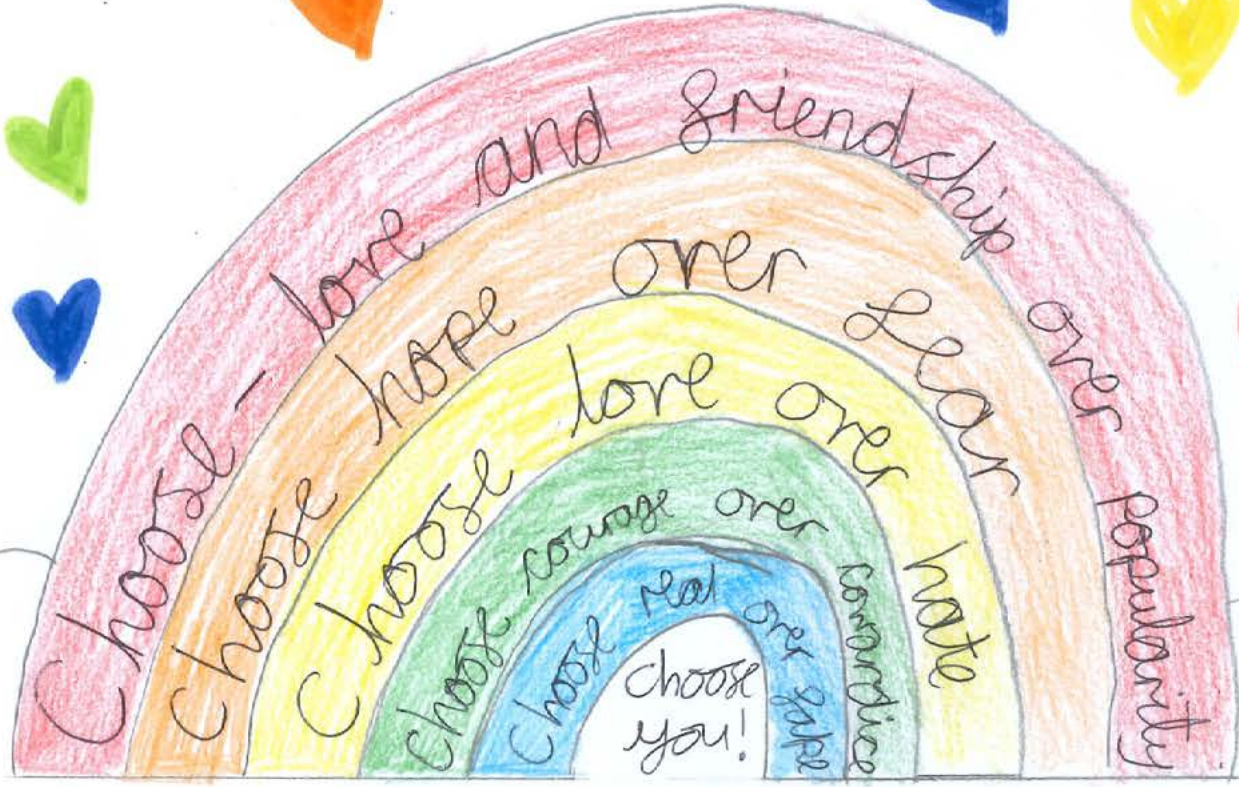 Choose - love and friendship over popularity
Choose hope over fear
Choose love over hate
Choose courage over cowardice
Choose real over fake
Choose
you!